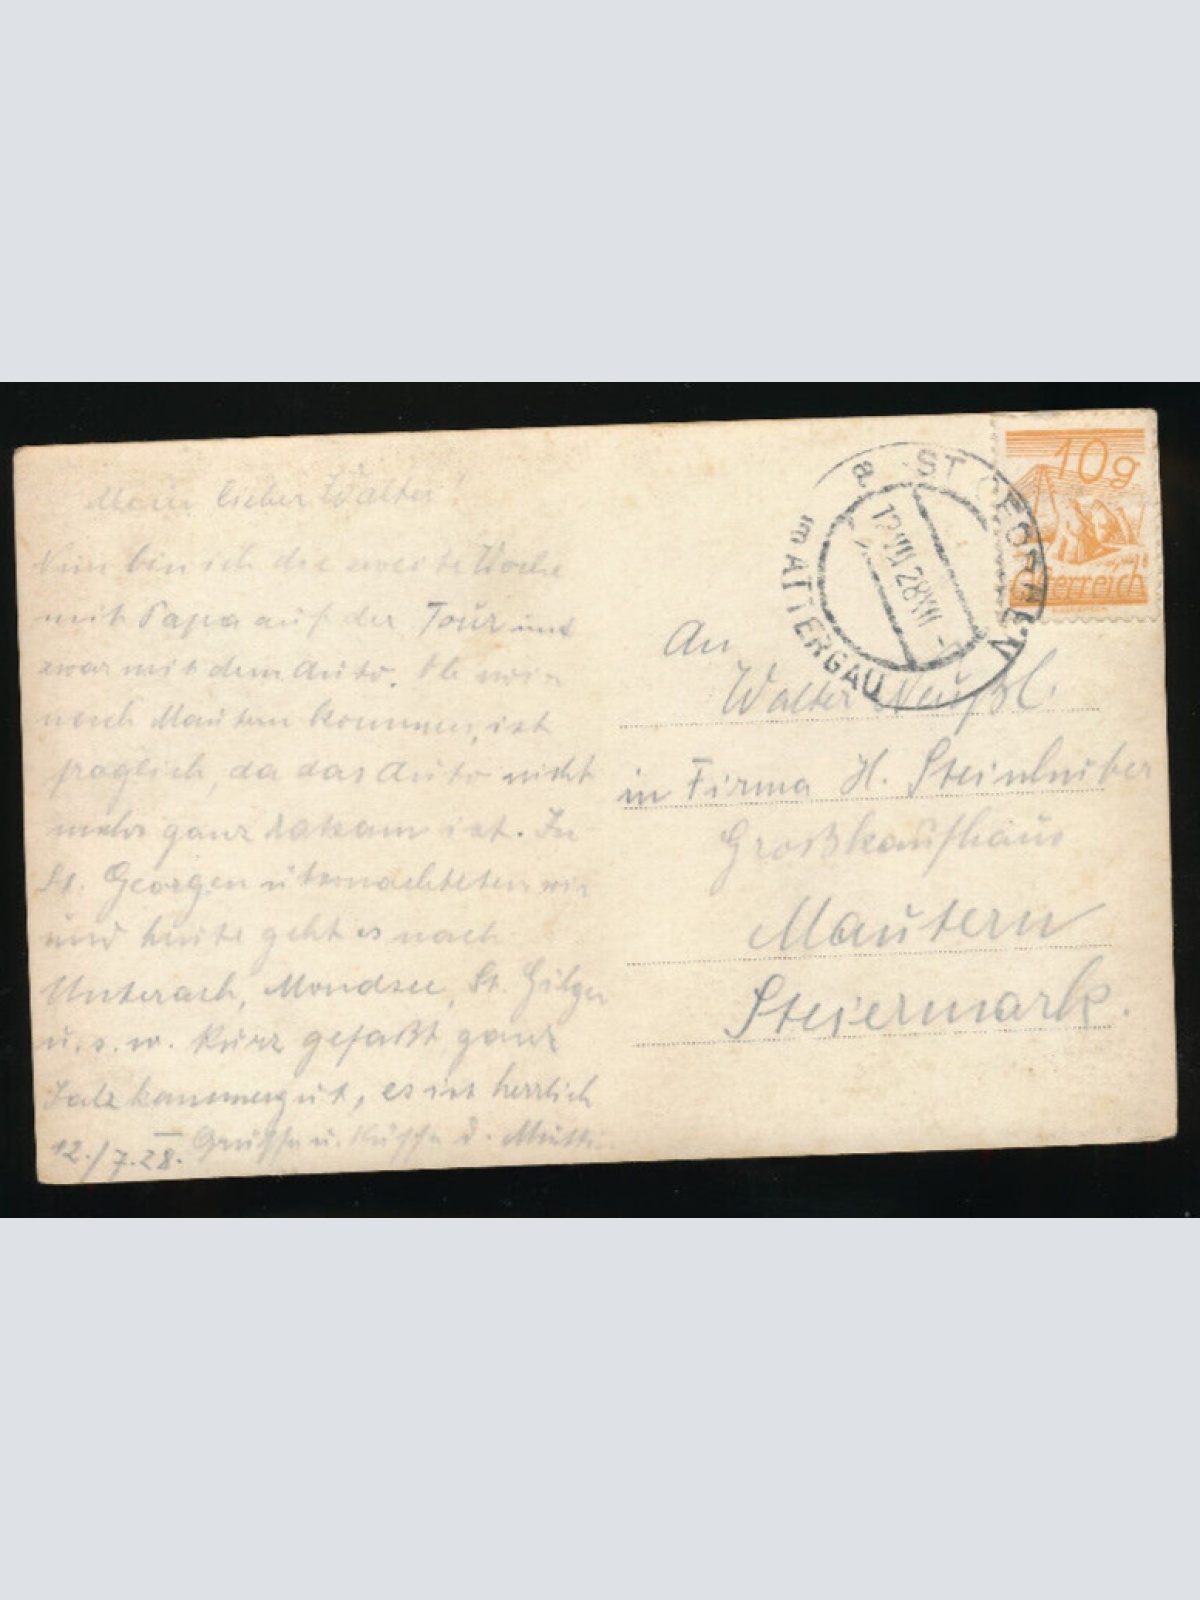 Mein lieber Walter!
Nun bin ich die zweite Woche
mit Papa auf der Tour und
zwar mit dem Auto. Ob wir
nach Mautern kommen, ist
fraglich, da das Auto nicht
mehr ganz ratsam ist. In
St. Georgen übernachteten wir
und heute geht es nach
Unterach, Mondsee, St. Gilgen
u. s. w. kurz gefaßt ganz
Salzkammergut, es ist herrlich
12./7.28. Grüsse u. Küsse d. Mutti
a ST. GEORGEN
IM ATTERGAU
12 VII 28
10g
Österreich
An
Walter Neußl.
in Firma H. Steinhuber
Großkaufhaus
Mautern
Steiermark.